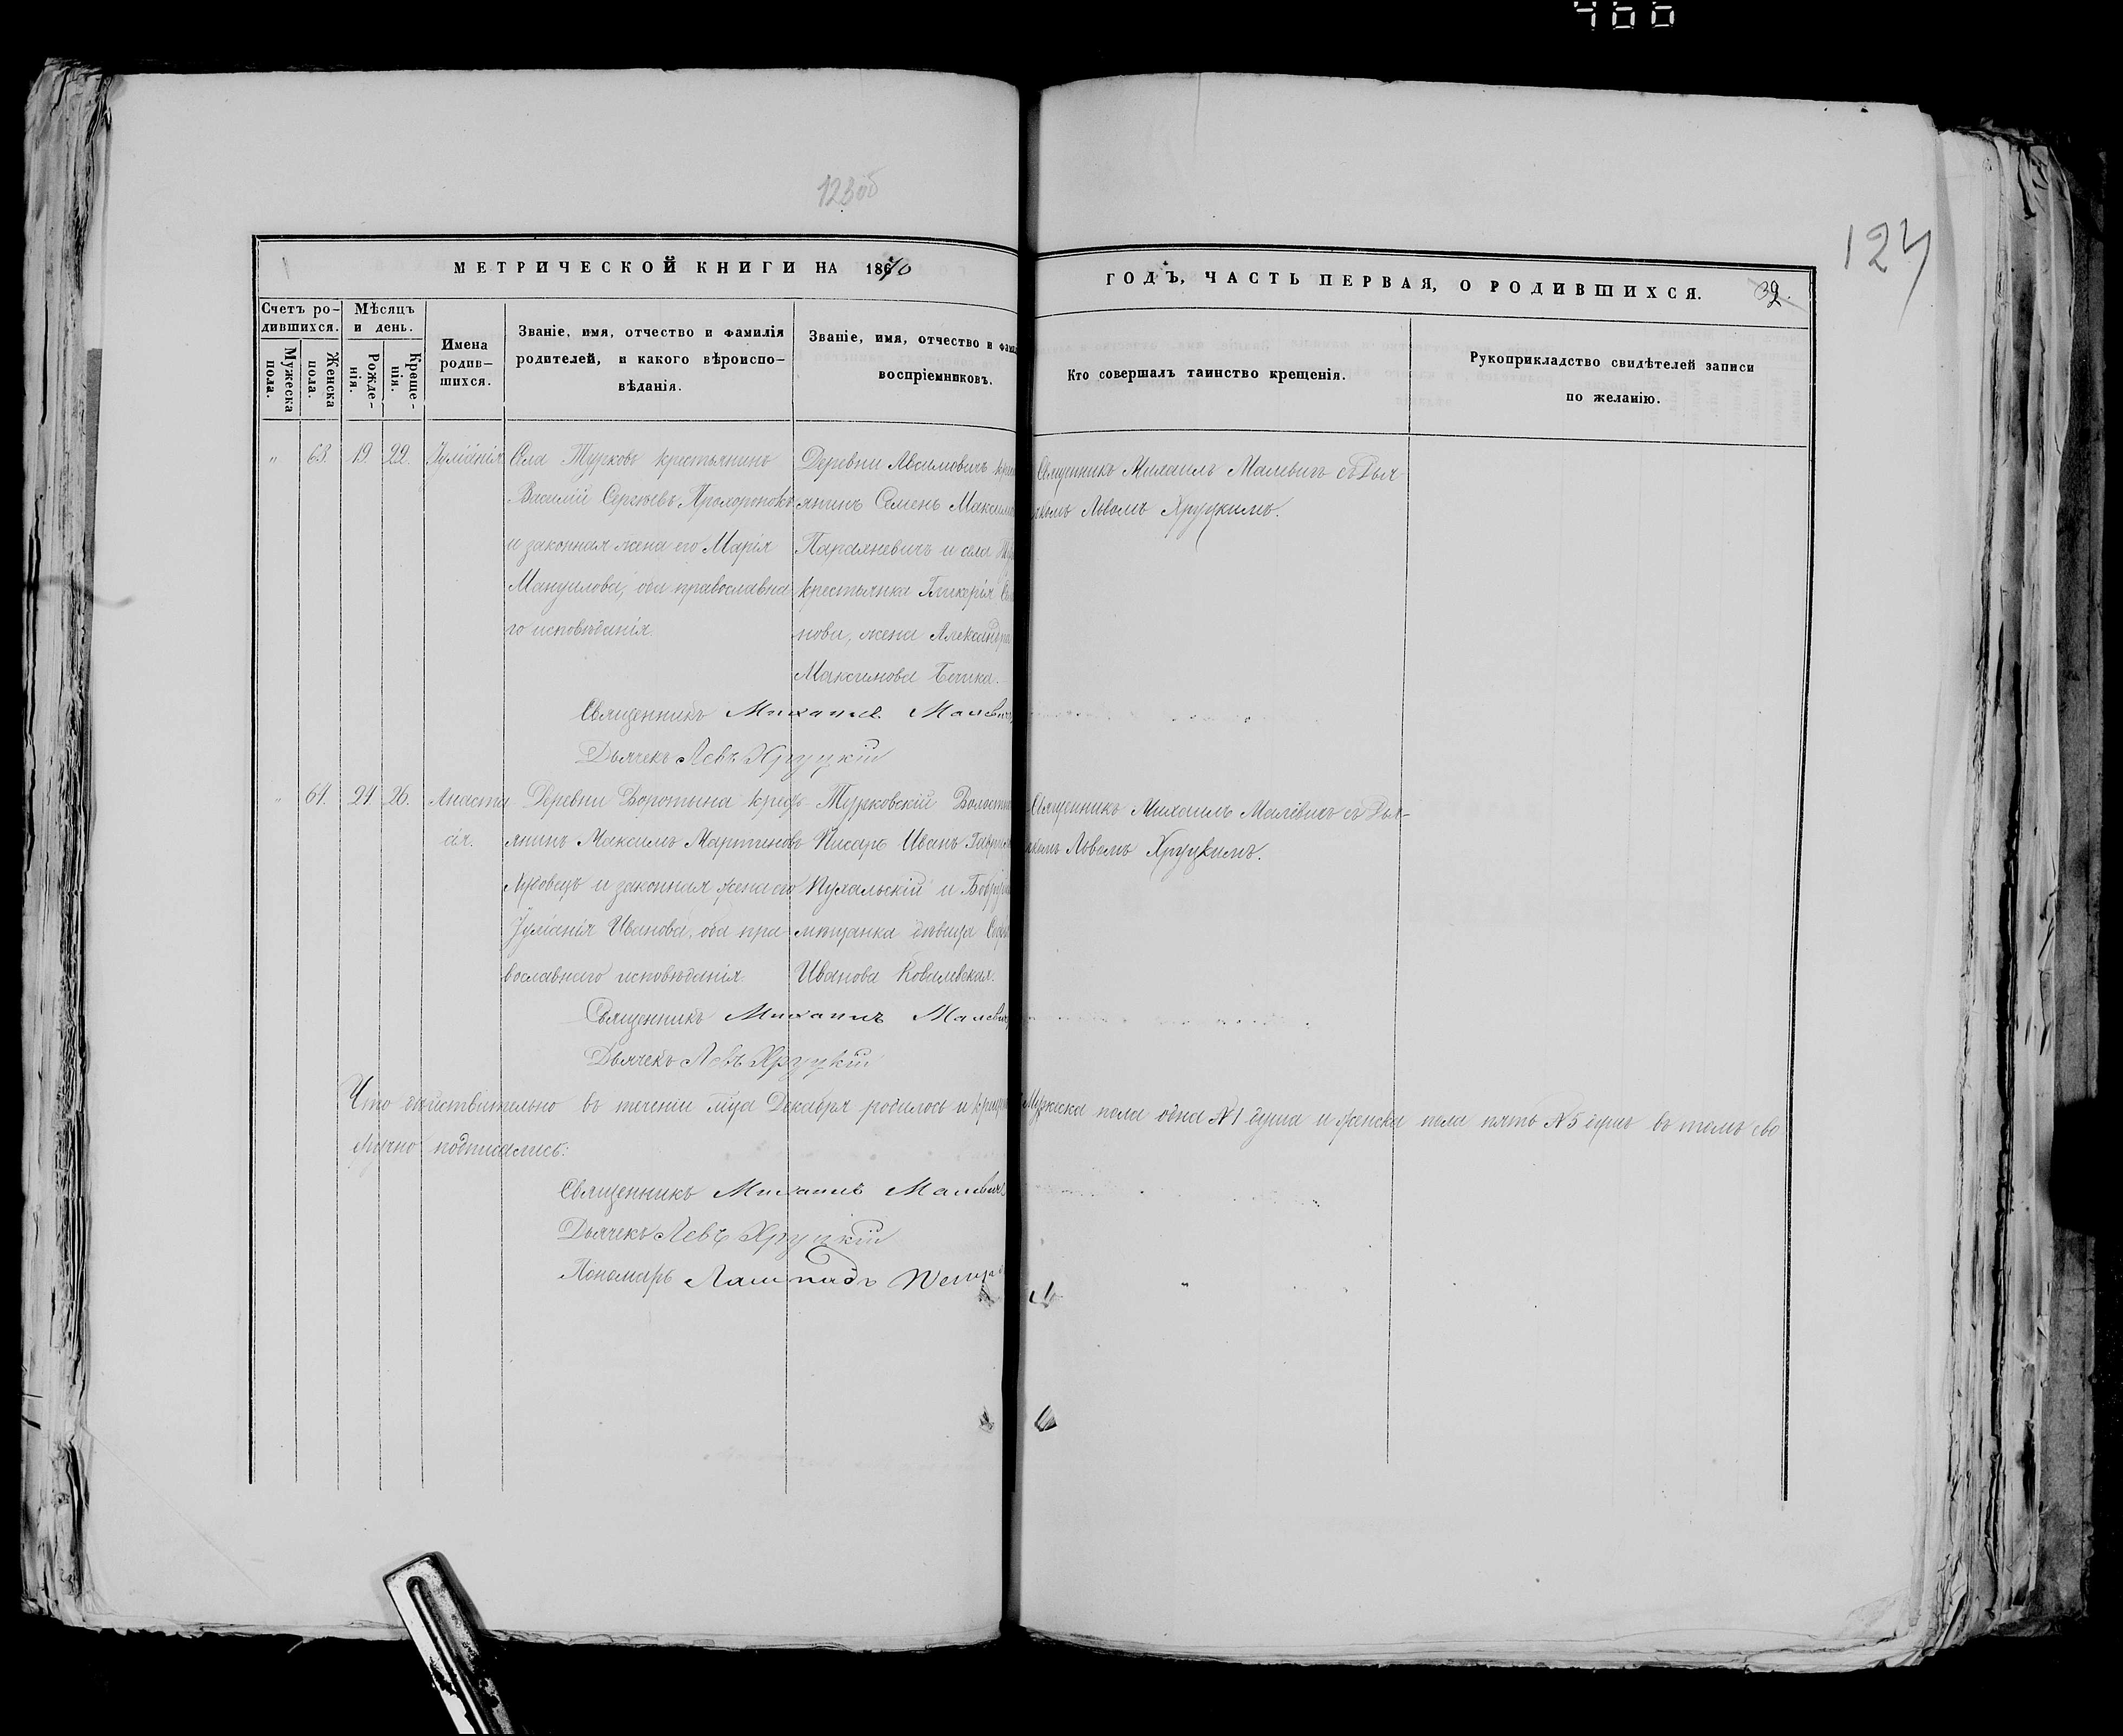 466
123об
124
МЕТРИЧЕСКОЙ КНИГИ НА 1870
ГОДЪ, ЧАСТЬ ПЕРВАЯ, О РОДИВШИХСЯ.
32.
Счетъ ро-
дившихся.
Мужеска
пола.
Женска
пола.
Мѣсяцъ
и день.
Рожде-
нія.
Креще-
нія.
Имена
родив-
шихся.
Званіе, имя, отчество и фамилія
родителей, и какого вѣроиспо-
вѣданія.
Званіе, имя, отчество и фами
воспріемниковъ.
Кто совершалъ таинство крещенія.
Рукоприкладство свидѣтелей записи
по желанію.
„ 63. 19. 22. Іуліанія
Села Турковъ крестьянинъ
Василій Сергѣевъ
и законная жена его Марія
Мануилова, оба православна
го исповѣданія.
Деревни крес
янинъ Семенъ Максимо
и села
крестьянка Гликерія
нова, жена Александра
Максимова
Священникъ Михаилъ Малевичъ съ Дья
комъ Львомъ Хруцкимъ.
Священникъ Михаилъ Малевичъ
Дьячекъ Левъ Хруцкій
„ 64. 24. 26. Анаста
сія.
Деревни Воротына крес
янинъ Максимъ Мартиновъ
и законная жена его
Іуліанія Иванова, оба пра-
вославнаго исповѣданія.
Турковскій Волостно
Писарь Иванъ Гаврил
Пухальскій и Бобруй
мѣщанка дѣвица
Иванова Ковалевская.
Священникъ Михаилъ Малевичъ съ Дья-
комъ Львомъ Хруцкимъ.
Священникъ Михаилъ Малевичъ
Дьячекъ Левъ Хруцкій
Что дѣйствительно въ теченіи мца Декабря родилось и крещено Мужеска пола одна № 1 душа и женска пола пять № 5 душъ въ томъ сво
ручно подписались:
Священникъ Михаилъ Малевичъ
Дьячекъ Левъ Хруцкій
Пономарь